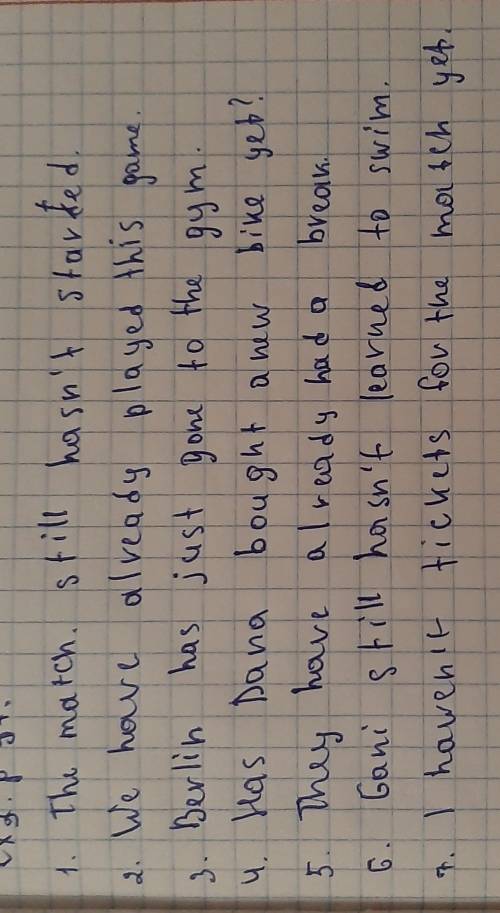 1. The match. still hasn't started.
2. We have already played this game.
3. Berlin has just gone to the gym.
4. Has Dana bought a new bike yet?
5. They have already had a break.
6. Gani still hasn't learned to swim.
7. I haven't tickets for the match yet.